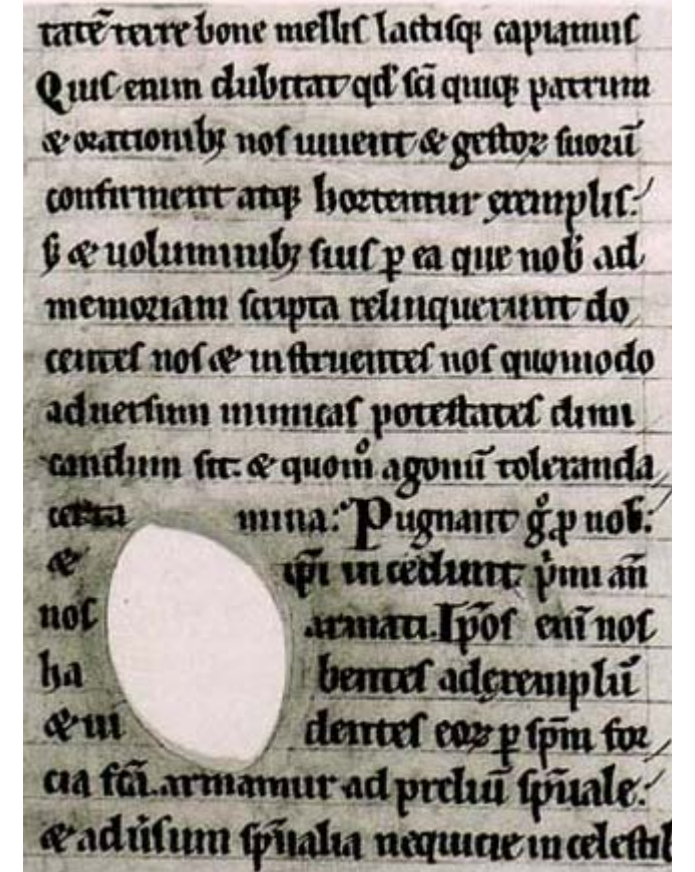 tatē terre bone mellis lactisq; capiamus
Quis enim dubitat qđ sċi quiq; patrum
& orationib; nos iuuent & gestoꝝ suoꝝ
confirment atq; hortentur exemplis.
s; & uoluminib; suis ꝑ ea que nob ad
memoriam scripta relinquerunt do
centes nos & instruentes nos quomodo
aduersum inimicas potestates dimi
candum sit. & quom̊ agonū toleranda
certa mina. Pugnant g̊ ꝓ nob.
& ip̄i incedunt p̍mi an̄
nos armati. Ip̄os eni̅ nos
ha bentes ad exemplū
& ui dentes eoꝝ ꝑ sp̄m for
cia fc̄a. armamur ad preliū sp̄uale.
& aduˀsum sp̄ualia nequicie in celestib